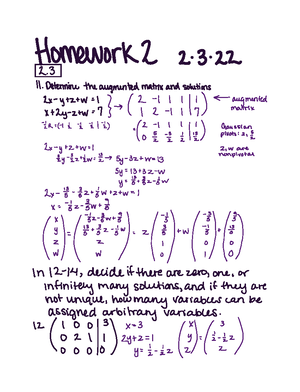 Homework 2 2·3·22
2.3
11. Determine the augmented matrix and solutions
2x-y+z+w=1
x+2y-z+w=7
→ (2 -1 1 1 | 1
1 2 -1 1 | 7)
← augmented matrix
(2 -1 1 1 | 1
0 5/2 -3/2 1/2 | 13/2)
Gaussian
pivots: 2, 5/2
z, w are
nonpivotal
2x-y+z+w=1
5/2y-3/2z+1/2w=13/2 → 5y-3z+w=13
5y=13+3z-w
(x
y
z
w) =
= z + w +
In 12-14, decide if there are zero, one, or
infinitely many solutions, and if they are
not unique, how many variables can be
assigned arbitrary variables.
12 (1 0 0 | 3
0 2 1 | 1
0 0 0 | 0)
x=3
2y+z=1
y=1/2-1/2z
(x
y
z) = (3
1/2-1/2z
z)